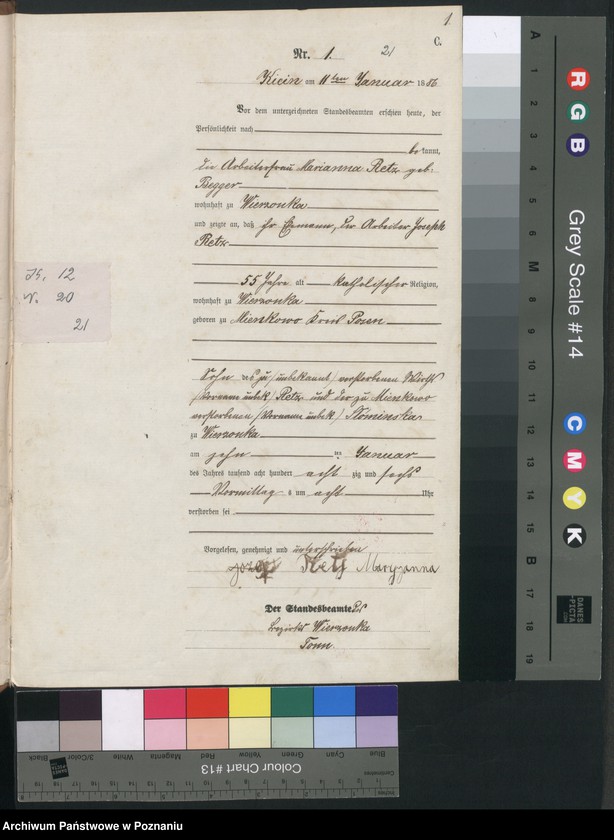 1.
21
C.
Nr. 1.
Kicin am 11ten Januar 1886
Vor dem unterzeichneten Standesbeamten erschien heute, der
Persönlichkeit nach
be kannt,
die Arbeiterfrau Marianna Retz geb.
Begger
wohnhaft zu Wierzonka
und zeigte an, daß ihr Ehemann, der Arbeiter Joseph
Retz
55 Jahre alt katholischer Religion,
wohnhaft zu Wierzonka
geboren zu Mienkowo Kreis Posen
Sohn des zu /unbekannt/ verstorbenen Wirth
/Vorname unbek/ Retz und der zu Mienkowo
verstorbenen /Vorname unbek/ Slominska
zu Wierzonka
am zehn ten Januar
des Jahres tausend acht hundert acht zig und sechs
Vormittag s um acht Uhr
verstorben sei
Vorgelesen, genehmigt und unterschrieben
Retz Maryanna
Der Standesbeamte des
bezirks Wierzonka
Tonn.
N. 20
21
A 1 2 3 4 5 6 M 8 9 10 11 12 13 14 15 B 17 18 19
R G B
Grey Scale #14
C M Y K
DANES
PICTA
Colour Chart #13
Blue Cyan Green Yellow Red Magenta White 3/Color Black
Centimetres
Archiwum Państwowe w Poznaniu